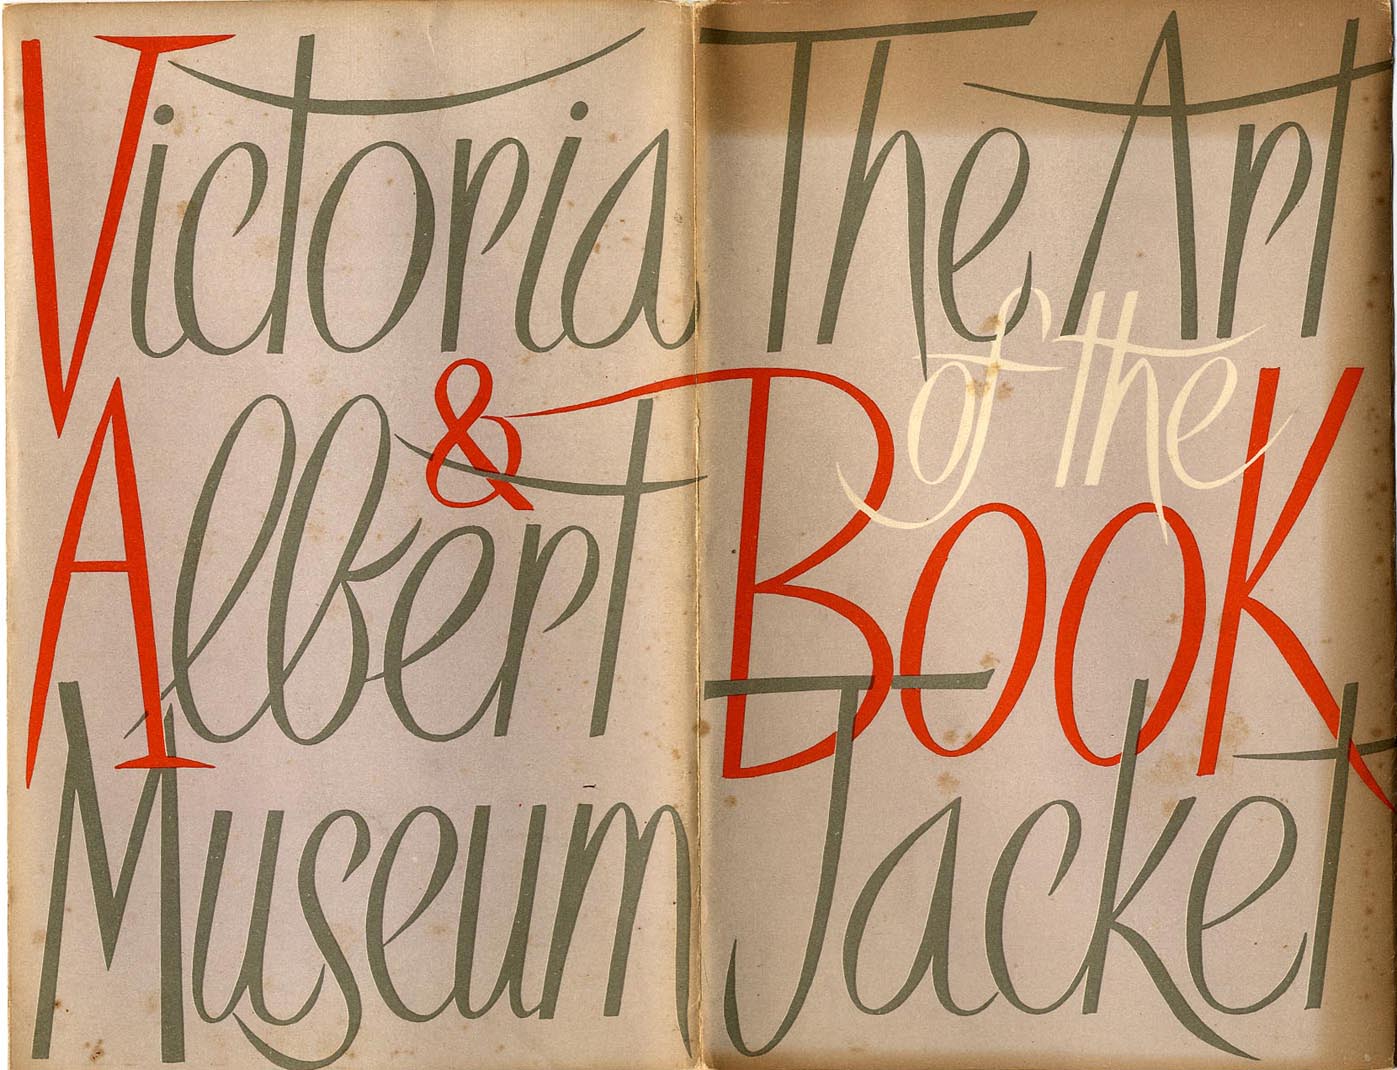 Victoria
&
Albert
Museum
The Art
of the
BooK
Jacket